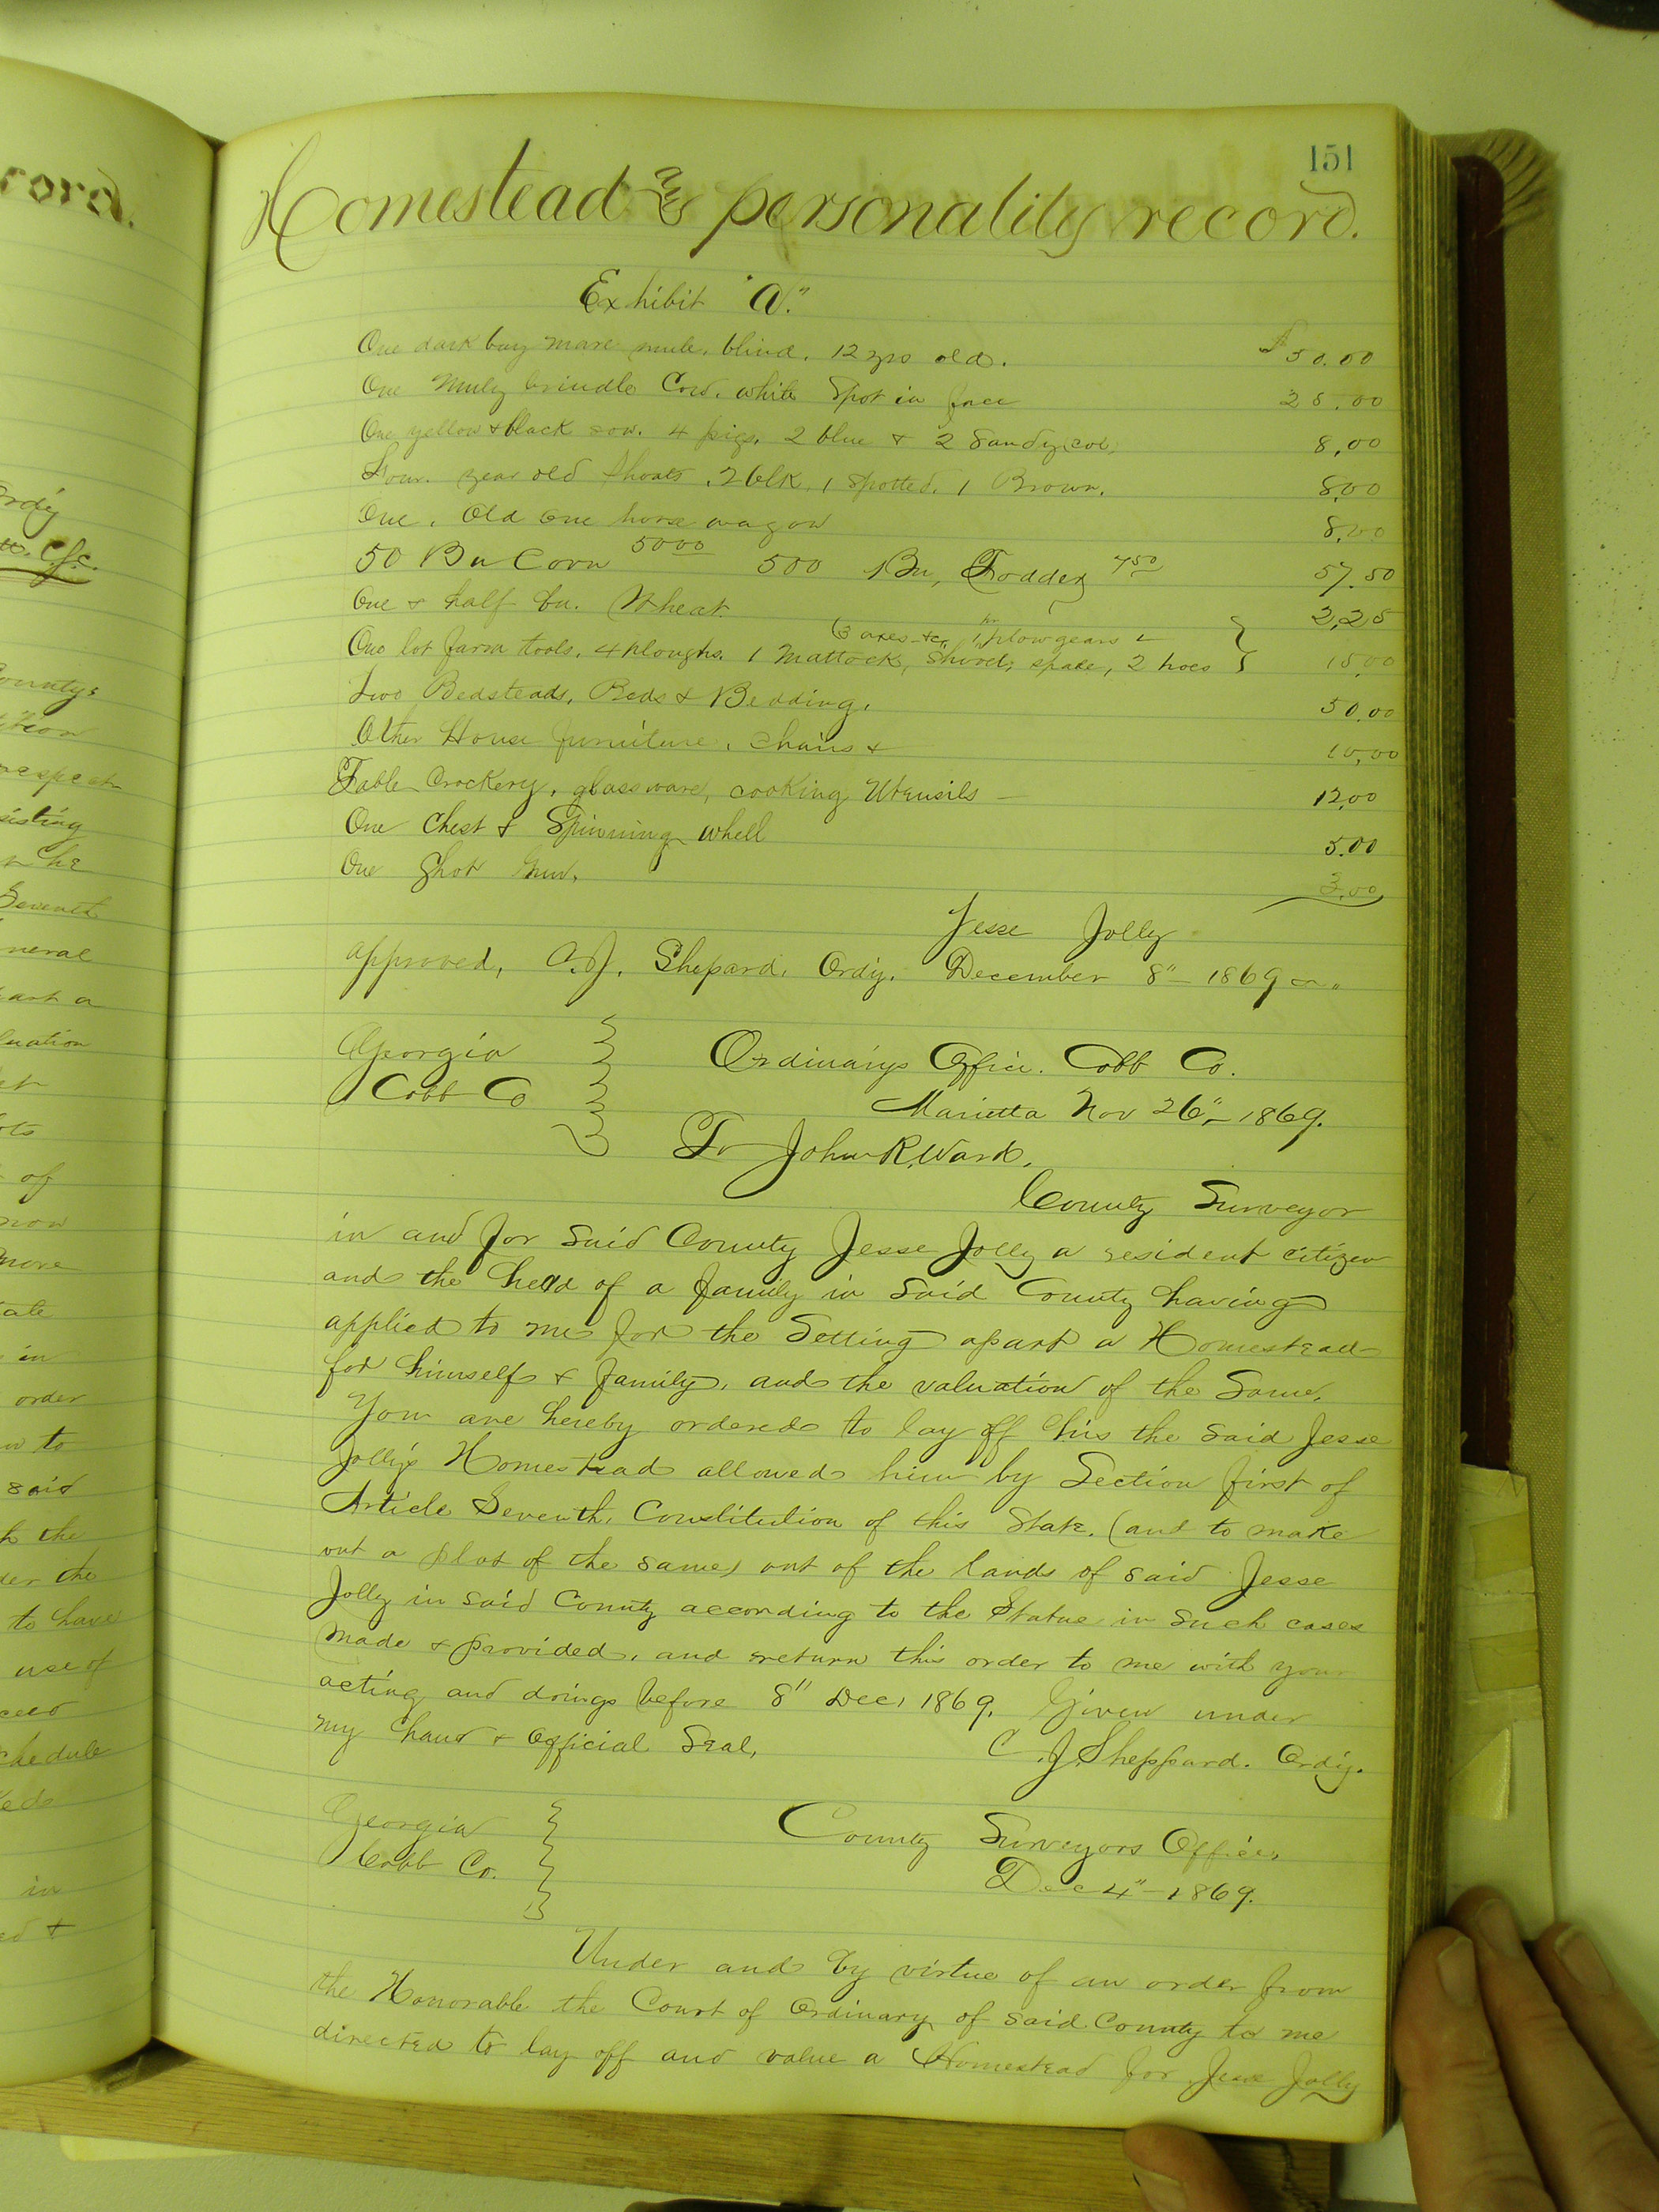 151
Homestead & personality record.
Exhibit "A."
One dark bay mare mule, blind. 12 yrs old. $50.00
One Muly brindle Cow. white Spot in face 25.00
One yellow & black sow. 4 pigs. 2 blue & 2 Sandy col, 8,00
Four. year old Shoats, 2 blk, 1 Spotted. 1 Brown. 8,00
One, Old one horse wagon 8,00
50 Bu Corn 50 00 500 Bu, Fodder 7 50 57.50
One & half bu. Wheat 2,25
(3 axes 1 pr plow gears
One lot farm tools, 4 ploughs. 1 Mattock, Shovel, spade, 2 hoes } 15,00
Two Bedsteads, Beds & Bedding, 50.00
Other House furniture, chairs & 10,00
Table Crockery, glass ware, cooking Utensils 12,00
One Chest & Spinning whell 5.00
One Shot Gun. 3,00
Jesse Jolly
approved, C.J. Shepard. Ordy. December 8" 1869
Georgia } Ordinarys Office. Cobb Co.
Cobb Co } Marietta Nov 26" 1869.
To John R. Ward.
County Surveyor
in and for said County Jesse Jolly a resident citizen
and the head of a family in said County having
applied to me for the Setting apart a Homestead
for himself & family, and the valuation of the Same.
You are hereby ordered to lay off his the said Jesse
Jolly's Homestead allowed him by Section first of
Article Seventh, Constitution of this State. (and to make
out a plat of the same) out of the lands of said Jesse
Jolly in said County according to the Statue in such cases
made & provided, and return this order to me with your
acting and doings before 8" Dec, 1869. Given under
my hand & Official Seal,
C.J. Sheppard. Ordy.
Georgia } County Surveyors Office,
Cobb Co. } Dec 4" 1869.
Under and by virtue of an order from
the Honorable the Court of Ordinary of said County to me
directed to lay off and value a Homestead for Jesse Jolly